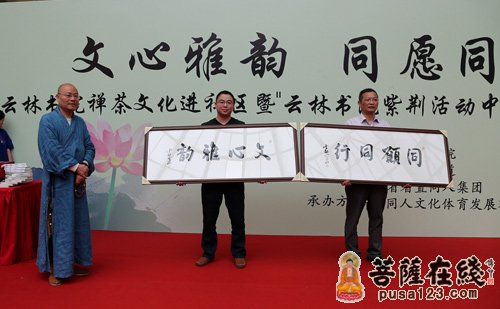 文心雅韵 同愿同
云林书院禅茶文化进社区暨"云林书院紫荆活动中
文心雅韻
同願同行
院
省直同人集团
承办方
同人文化体育发展
菩薩在綫
pusa123.com